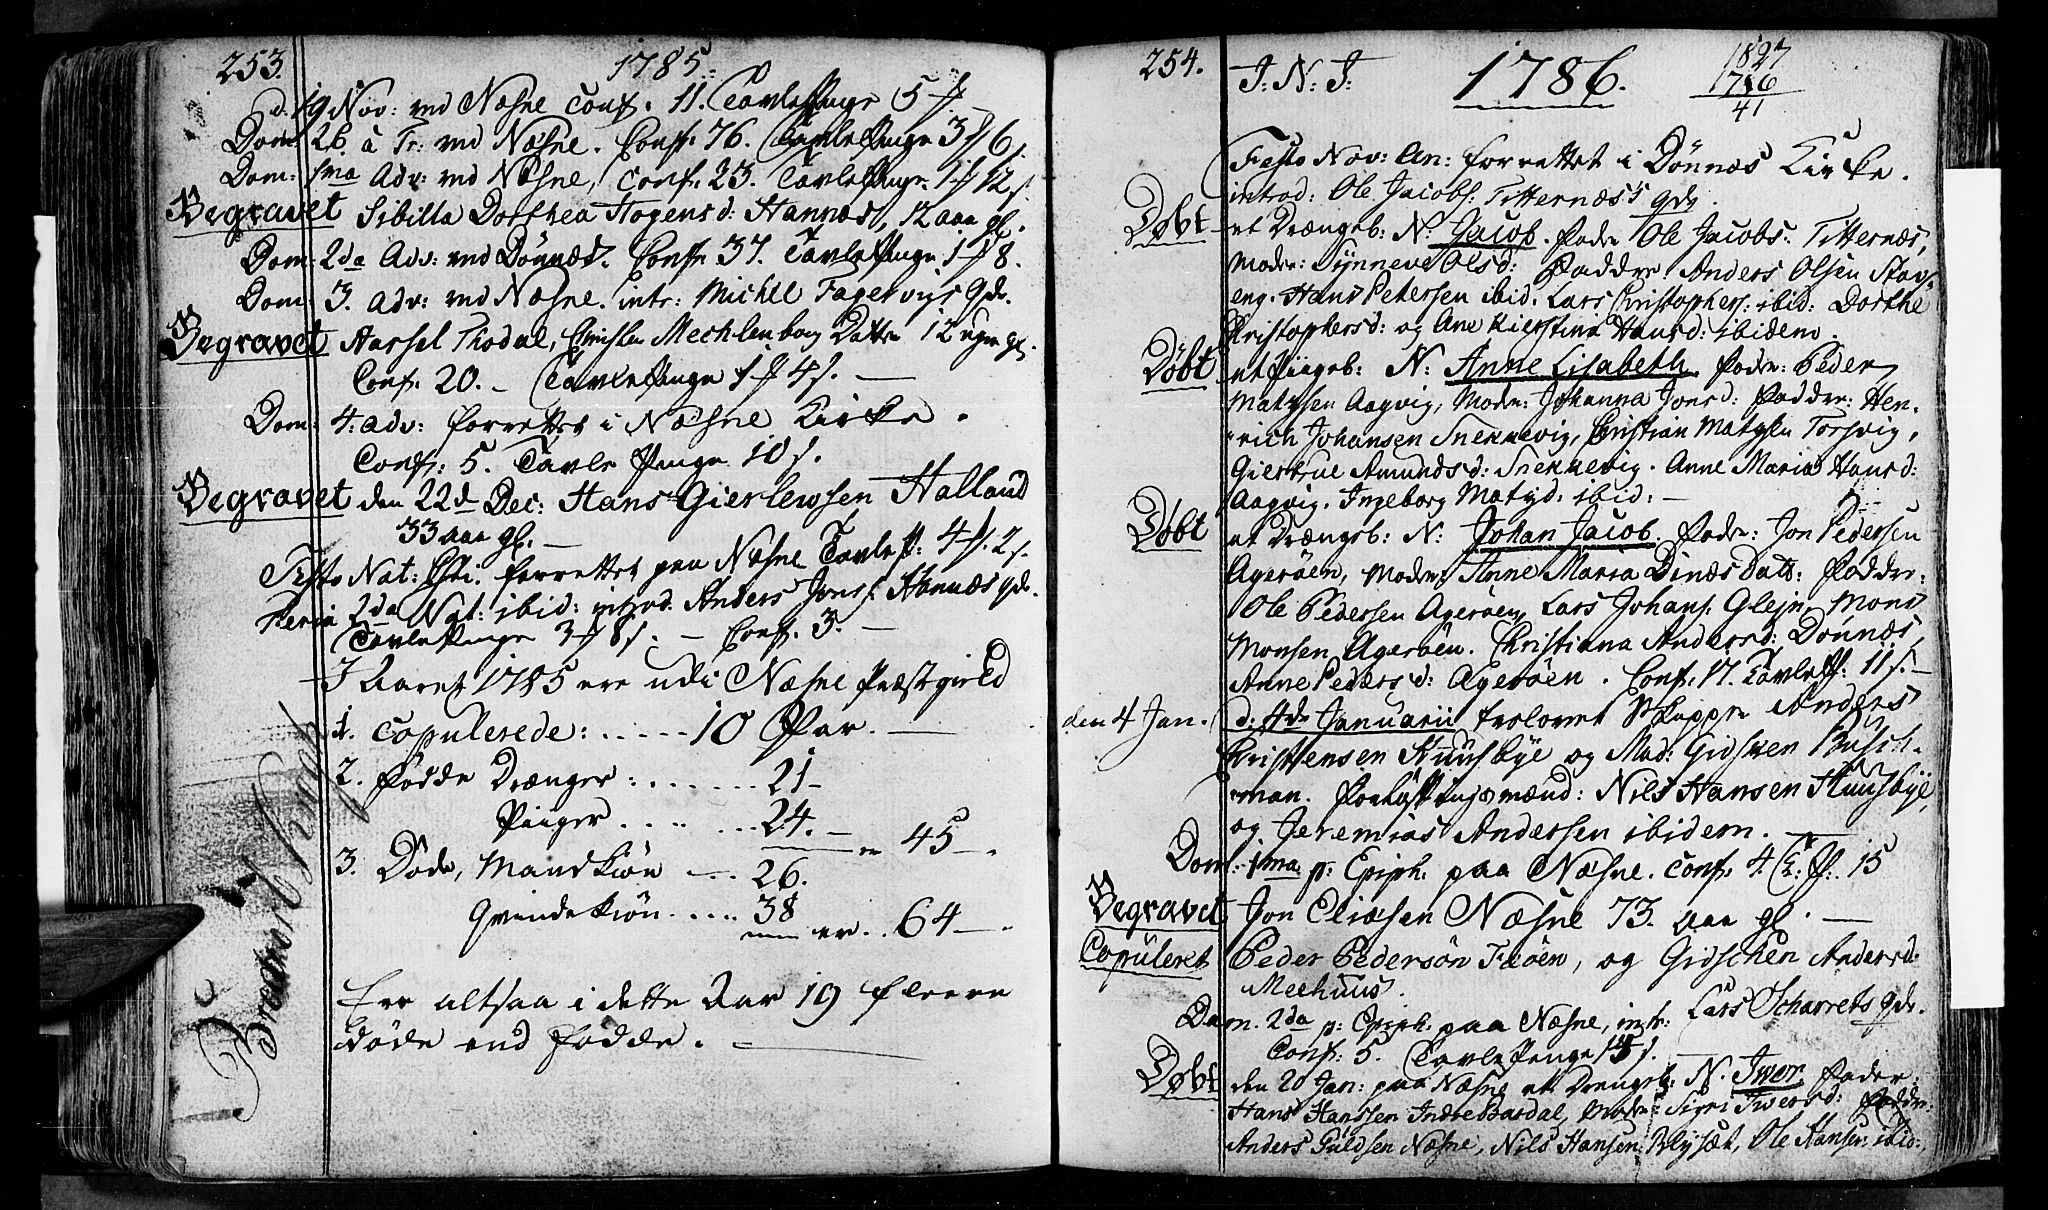 253. 1785.
d. 19 Nov: ved Næsne Conf. 11. Tavle Penge 5
Dom: 26. à Tr: ved Næsne. Conf. 76. Tavle Penge 3 6.
Dom: 1ma Adv: ved Næsne, Conf. 23. Tavle Penge 1 12 s.
Begravet Sibilla Dorthea Hagensd: Hannæs, 12 aar gl.
Dom: 2da Adv: ved Dönnæs. Conf. 37. Tavle Penge 1 8.
Dom: 3. Adv: ved Næsne. intr: Michel Fagervigs qde.
Begravet Aassel Thodal, Christen Mechlenborg Datter 12 uger gl.
Conf. 20. – Tavle Penge 1 4 s. —
Dom: 4. adv: forrettet i Næsne Kirke.
Conf. 5. Tavle Penge 10 s.
Begravet den 22d Dec: Hans Gierlewsen Halland
33 aar gl. —
Festo Nat: Chr. forrettet paa Næsne Tavle P: 4 2 s.
Feria 2da Nat: ibid: introd. Anders Jons: Hannæs qde.
Tavle Penge 3 8 s. – Conf. 3. —
I Aaret 1785 ere udi Næsne Præstegield
1. Copulerede: . . . . . 10 Par. —
2. Födde Drænger: . . . . . . 21 –
Piiger . . . . . . . 24. –
er 45 –.
3. Döde, Mandkiön – . . 26.
Qvindekiön . . . . 38
er . . 64 –.
Er altsaa i dette Aar 19 fleere
döde end födde. —
254. I. N. I. 1786. 1827
1786
41
Festo Nov: An: forrettet i Dönnæs Kirke.
introd: Ole Jacobs: Titternæs's qde.
Døbt et Drængeb: N: Jacob. Fader Ole Jacobs: Titternæs,
Moder: Synneve Olsd: Faddere Anders Olsen Stavs-
eng. Hans Petersen ibid. Lars Christophers: ibid: Dorthe
Christophersd: og Ane Kierstina Hansd: ibidem.
Døbt et Piigeb: N: Anne Lisabeth. Fader: Peder
Matysen Aagvig, Moder: Johanna Jonsd: Faddere: Hen-
rich Johansen Snekkevig, Christian Matysen Torsvig,
Giertrue Amundsd: Snekkevig. Anne Maria Hansd:
Aagvig. Ingeborg Matyd: ibid: —
Døbt et Drængeb: N: Johan Jacob. Fader: Jon Pedersen
Ageröen, Moder: Anne Maria Dinæs datt: Faddere:
Ole Pedersen Ageröen, Lars Johans. Glejn, Mons
Monsen Ageröen. Christiana Andersd: Dönnæs,
Anne Pedersd: Ageröen. Conf. 17. Tavle P: 11 s. –
den 4 Jan. d. 4de Januarii troloved Anders
Christensen Huusbye og Mad: Gidsken Busch-
man. Forlovningsmænd: Nils Hansen Huusbye,
og Jeremias Andersen ibidem.
Dom: 1ma p: Epiph. paa Næsne. Conf. 4. T. P. 15
Begravet Jon Eliæsen Næsne 73. aar gl. —
Copuleret Peder Pedersön Fæöen, og Gidschen Andersd:
Meehuus.
Dom. 2da p: Epiph. paa Næsne, intr: Lars Scharrets qde.
Conf. 5. Tavle Penge
Døbt den 20 Jan: paa Næsne et Drængeb: N. Iwer. Fader
Hans Hanssen Indre Bardal, Moder: Sigri Iwersd: Faddere:
Anders Guldsen Næsne, Nils Hansen Blysæt, Ole Hansen ibid: